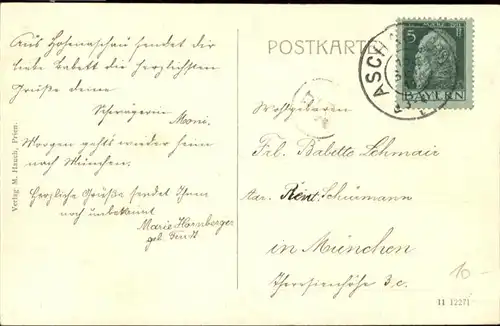 Aus Hohenaschau sendet dir
liebe Babett die herzlichsten
Grüße deine
Schwägerin
Moni.
Morgen geht's wieder heim
nach München.
Herzliche Grüße sendet Ihnen
noch unbekannt
Marie Hornberger
geb.
Verlag M. Hauch, Prien.
POSTKARTE
ASCH
5
BAYERN
Wohlgeboren
Frl. Babette Lehmair
Adr. Rent. Schürmann
in München
Theresienhöhe 3c.
10
11 12271